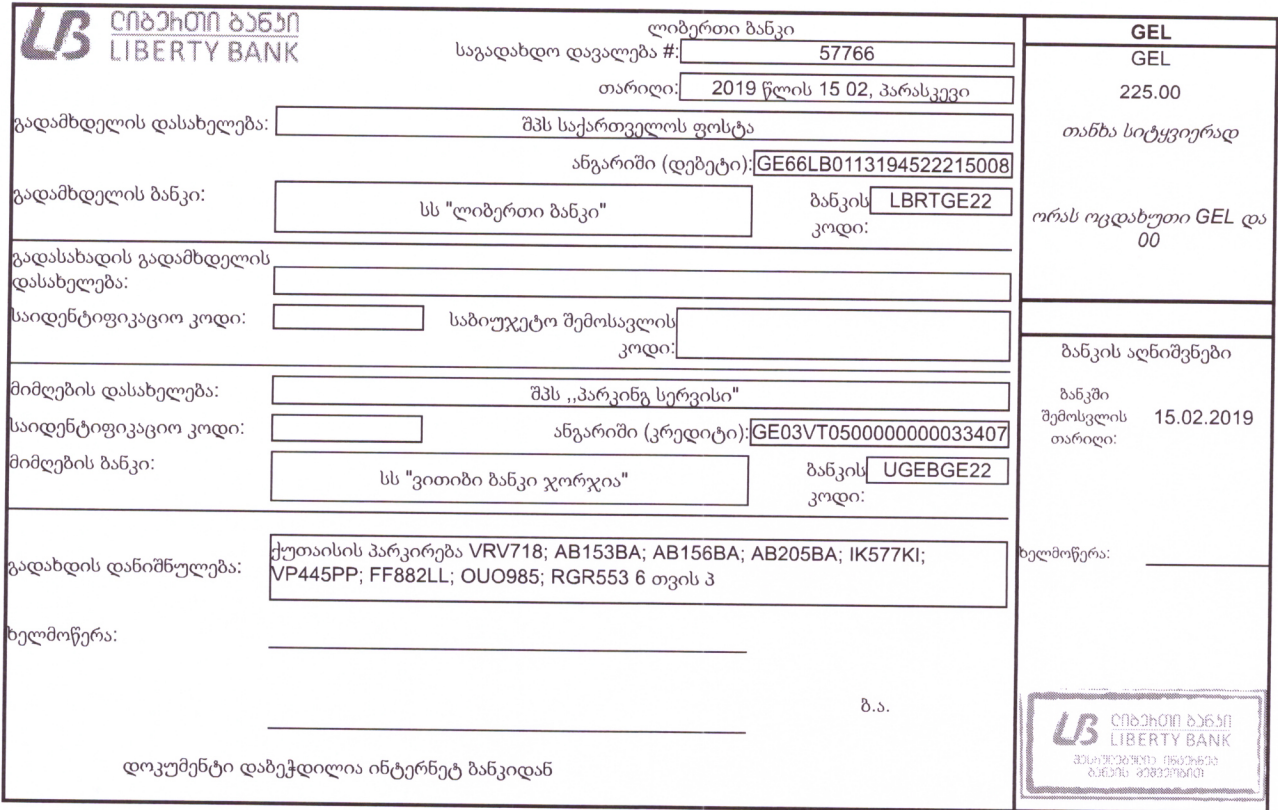 ლიბერთი ბანკი
LIBERTY BANK
ლიბერთი ბანკი
საგადახდო დავალება #: 57766
თარიღი: 2019 წლის 15 02, პარასკევი
გადამხდელის დასახელება: შპს საქართველოს ფოსტა
ანგარიში (დებეტი): GE66LB0113194522215008
გადამხდელის ბანკი: სს "ლიბერთი ბანკი" ბანკის კოდი: LBRTGE22
გადასახადის გადამხდელის
დასახელება:
საიდენტიფიკაციო კოდი: საბიუჯეტო შემოსავლის
კოდი:
მიმღების დასახელება: შპს ,,პარკინგ სერვისი"
საიდენტიფიკაციო კოდი: ანგარიში (კრედიტი): GE03VT0500000000033407
მიმღების ბანკი: სს "ვითიბი ბანკი ჯორჯია" ბანკის კოდი: UGEBGE22
გადახდის დანიშნულება: ქუთაისის პარკირება VRV718; AB153BA; AB156BA; AB205BA; IK577KI;
VP445PP; FF882LL; OUO985; RGR553 6 თვის პ
ხელმოწერა:
ბ.ა.
დოკუმენტი დაბეჭდილია ინტერნეტ ბანკიდან
GEL
GEL
225.00
თანხა სიტყვიერად
ორას ოცდახუთი GEL და
00
ბანკის აღნიშვნები
ბანკში
შემოსვლის
თარიღი: 15.02.2019
ხელმოწერა:
ლიბერთი ბანკი
LIBERTY BANK
შესრულებულია ინტერნეტ
ბანკის მეშვეობით